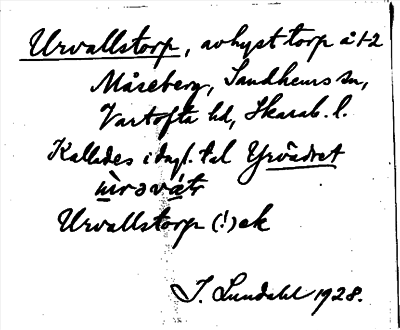 Urvallstorp, avhyst torp å 1-2
Måseberg, Sandhems sn,
Vartofta hd, Skarab. l.
Kallades i dagl. tal Yrvädret
Urvallstorp (!) ek
I. Lundahl 1928.